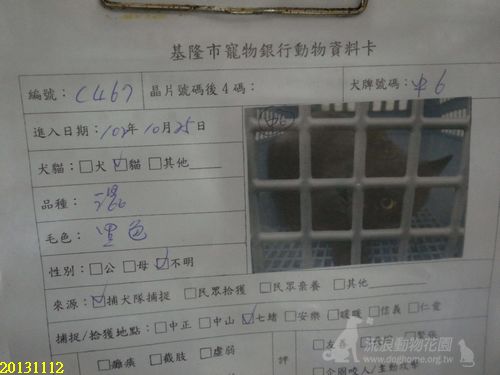 基隆市寵物銀行動物資料卡
編號：C467 晶片號碼後4碼： 犬牌號碼：中6
進入日期：102年10月25日
犬貓：□犬 ☑貓 □其他
品種：混
毛色：黑色
性別：□公 □母 ☑不明
來源：☑捕犬隊捕捉 □民眾拾獲 □民眾棄養 □其他
捕捉/拾獲地點：□中正 □中山 ☑七堵 □安樂 □暖暖 □信義 □仁愛
□癱瘓 □截肢 □虛弱 評 □友善
□企圖咬人/主動攻擊
流浪動物花園
www.doghome.org.tw
20131112